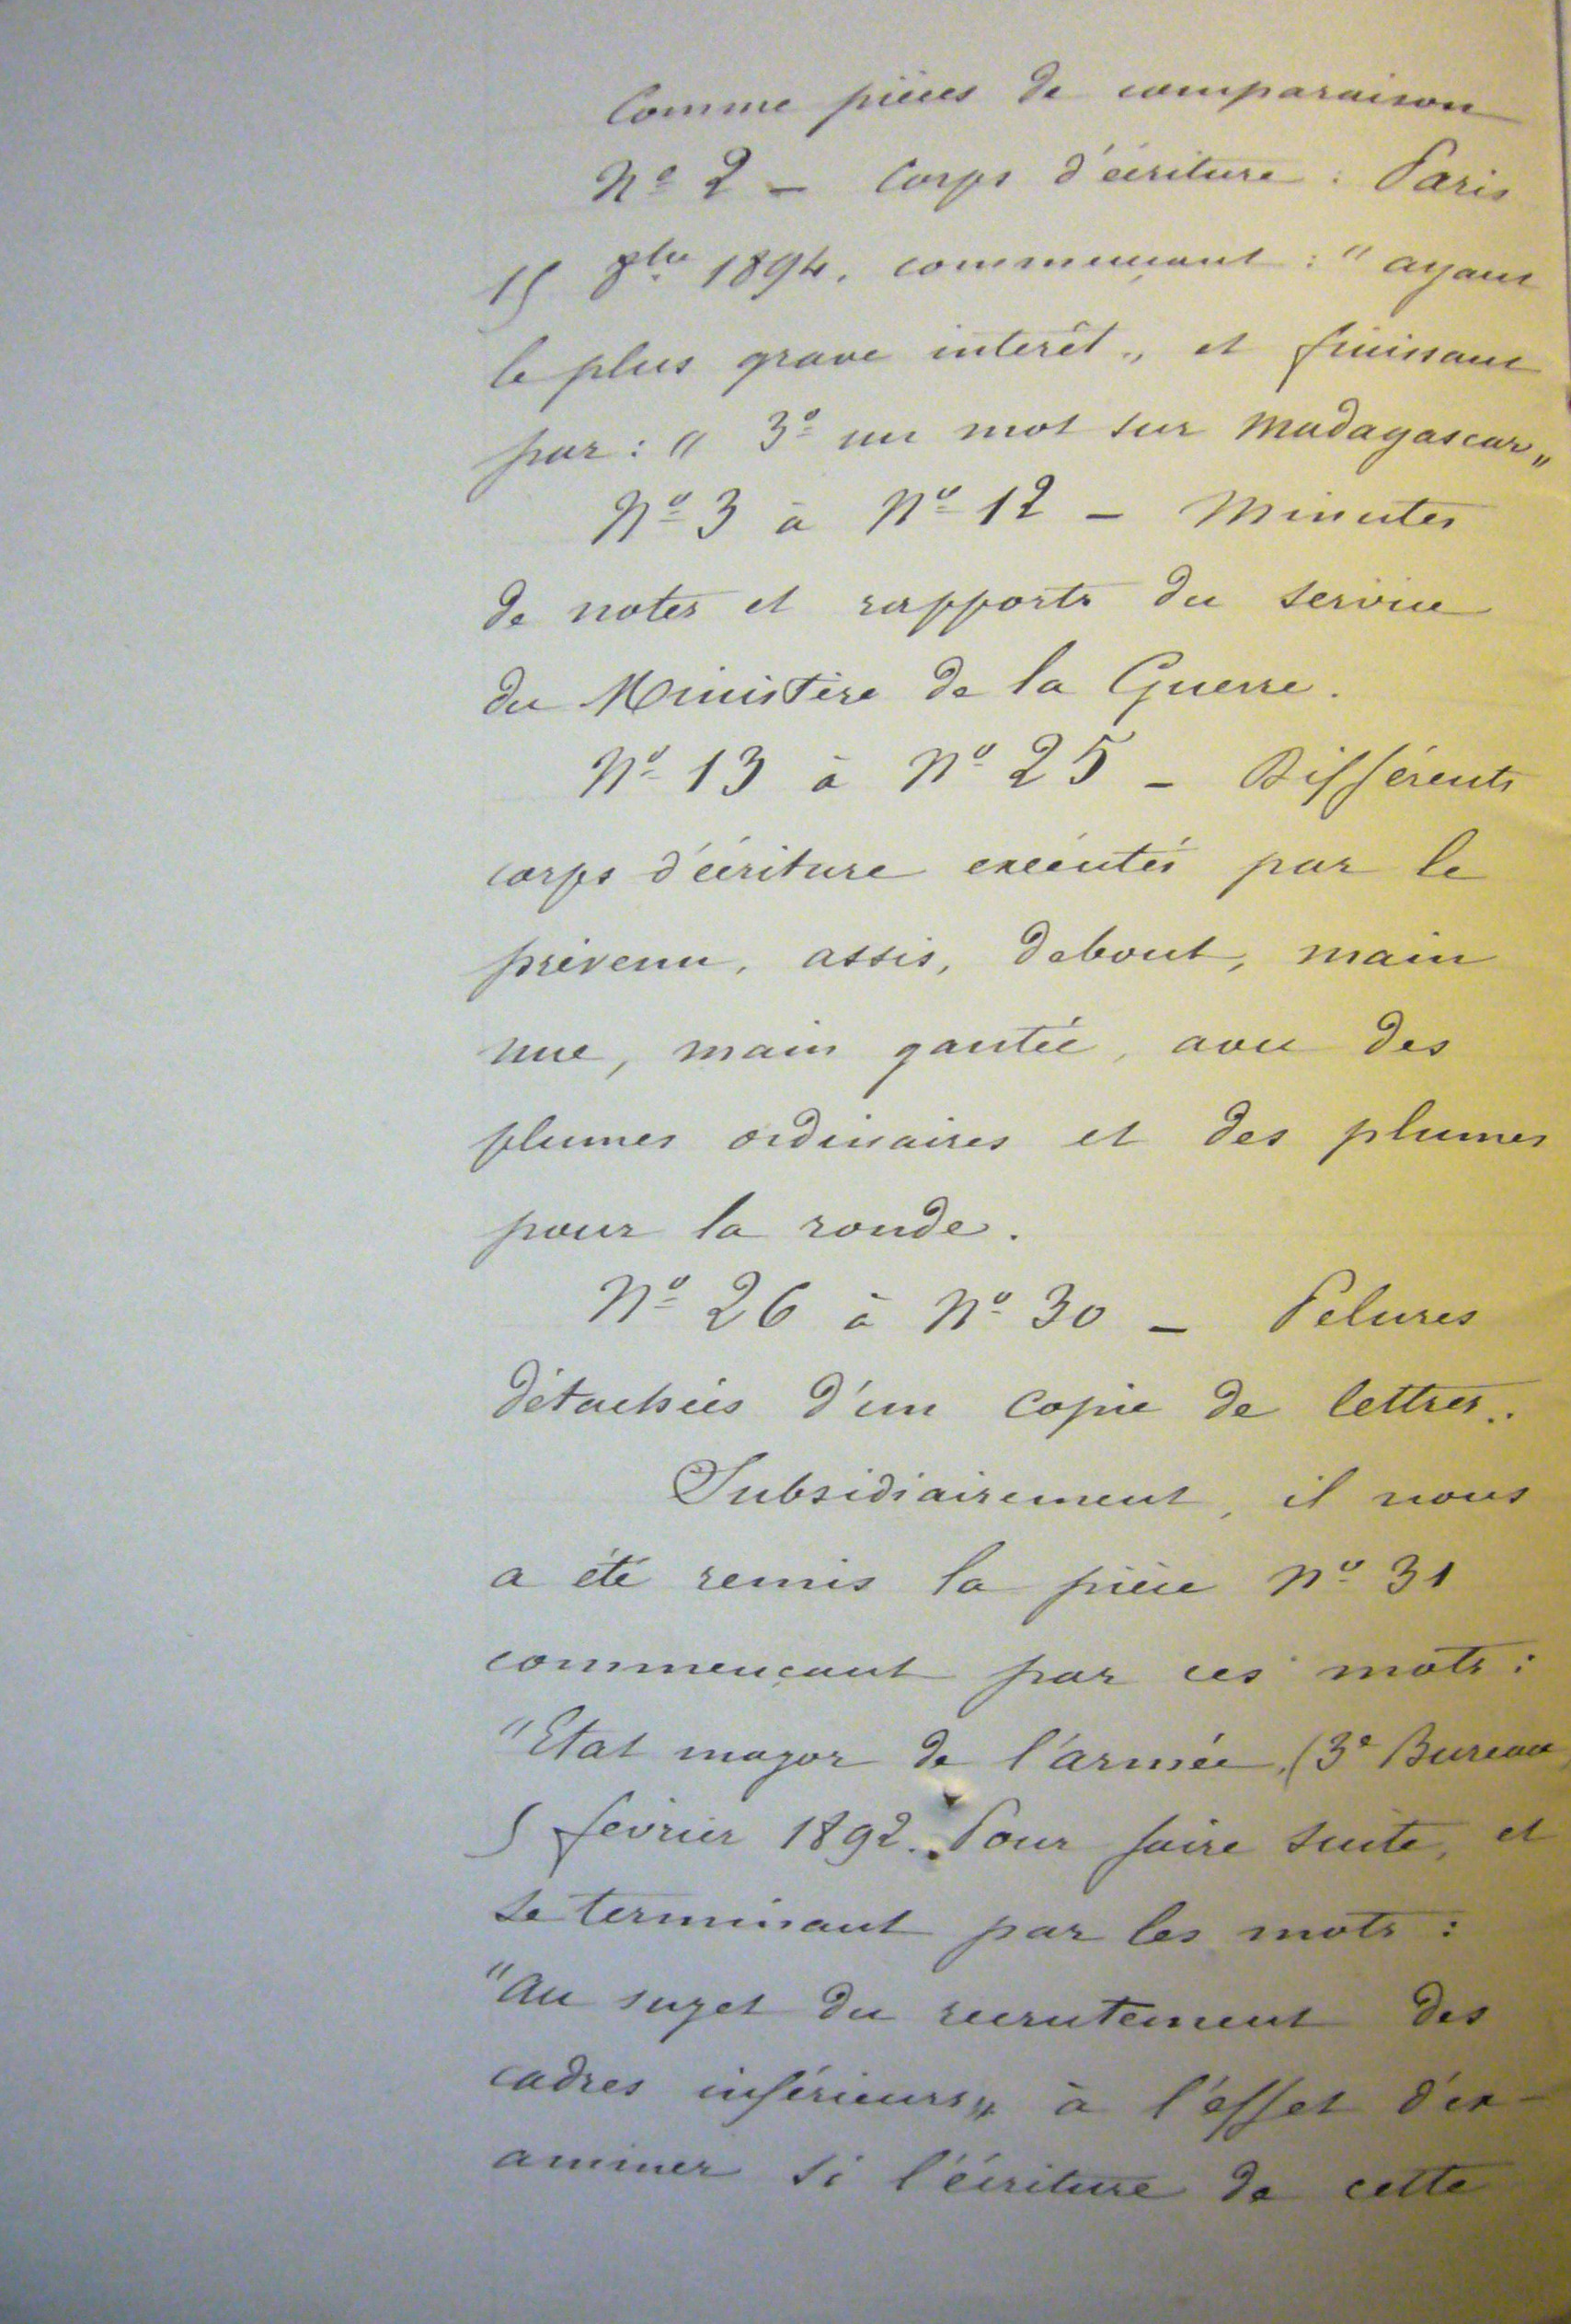 Comme pièces de comparaison
Nº 2 – Corps d'écriture : Paris
15 8bre 1894. commençant : "ayant
le plus grave interêt„ et finissant
par : " 3º un mot sur Madagascar„
Nº 3 à Nº 12 – Minutes
de notes et rapports du service
du Ministère de la Guerre.
Nº 13 à Nº 25 – Différents
corps d'écriture exécutés par le
prévenu, assis, debout, main
nue, main gantée, avec des
plumes ordinaires et des plumes
pour la ronde.
Nº 26 à Nº 30 – Pelures
détachées d'un Copie de lettres.
Subsidiairement, il nous
a été remis la pièce Nº 31
commençant par ces mots :
"Etat major de l'armée, (3e Bureau
5 février 1892. Pour faire suite, et
se terminant par les mots :
"Au sujet du recrutement des
cadres inférieurs„ à l'effet d'ex-
aminer si l'écriture de cette